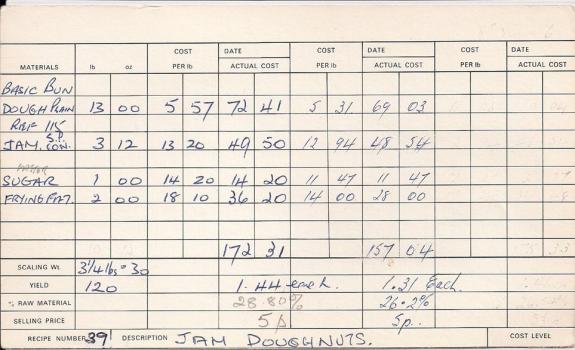 COST DATE COST DATE COST DATE
MATERIALS lb oz PER lb ACTUAL COST PER lb ACTUAL COST PER lb ACTUAL COST
BASIC BUN
DOUGH PLAIN 13 00 5 57 72 41 5 31 69 03
REF 115
JAM. S.P. CON. 3 12 13 20 49 50 12 94 48 54
SUGAR 1 00 14 20 14 20 11 47 11 47
FRYING FAT. 2 00 18 10 36 20 14 00 28 00
172 31 157 04
SCALING Wt. 3 1/4 lbs = 30
YIELD 120 1.44 each. 1.31 Each.
% RAW MATERIAL 28.80% 26.2%
SELLING PRICE 5p 5p..
RECIPE NUMBER 39 DESCRIPTION JAM DOUGHNUTS. COST LEVEL